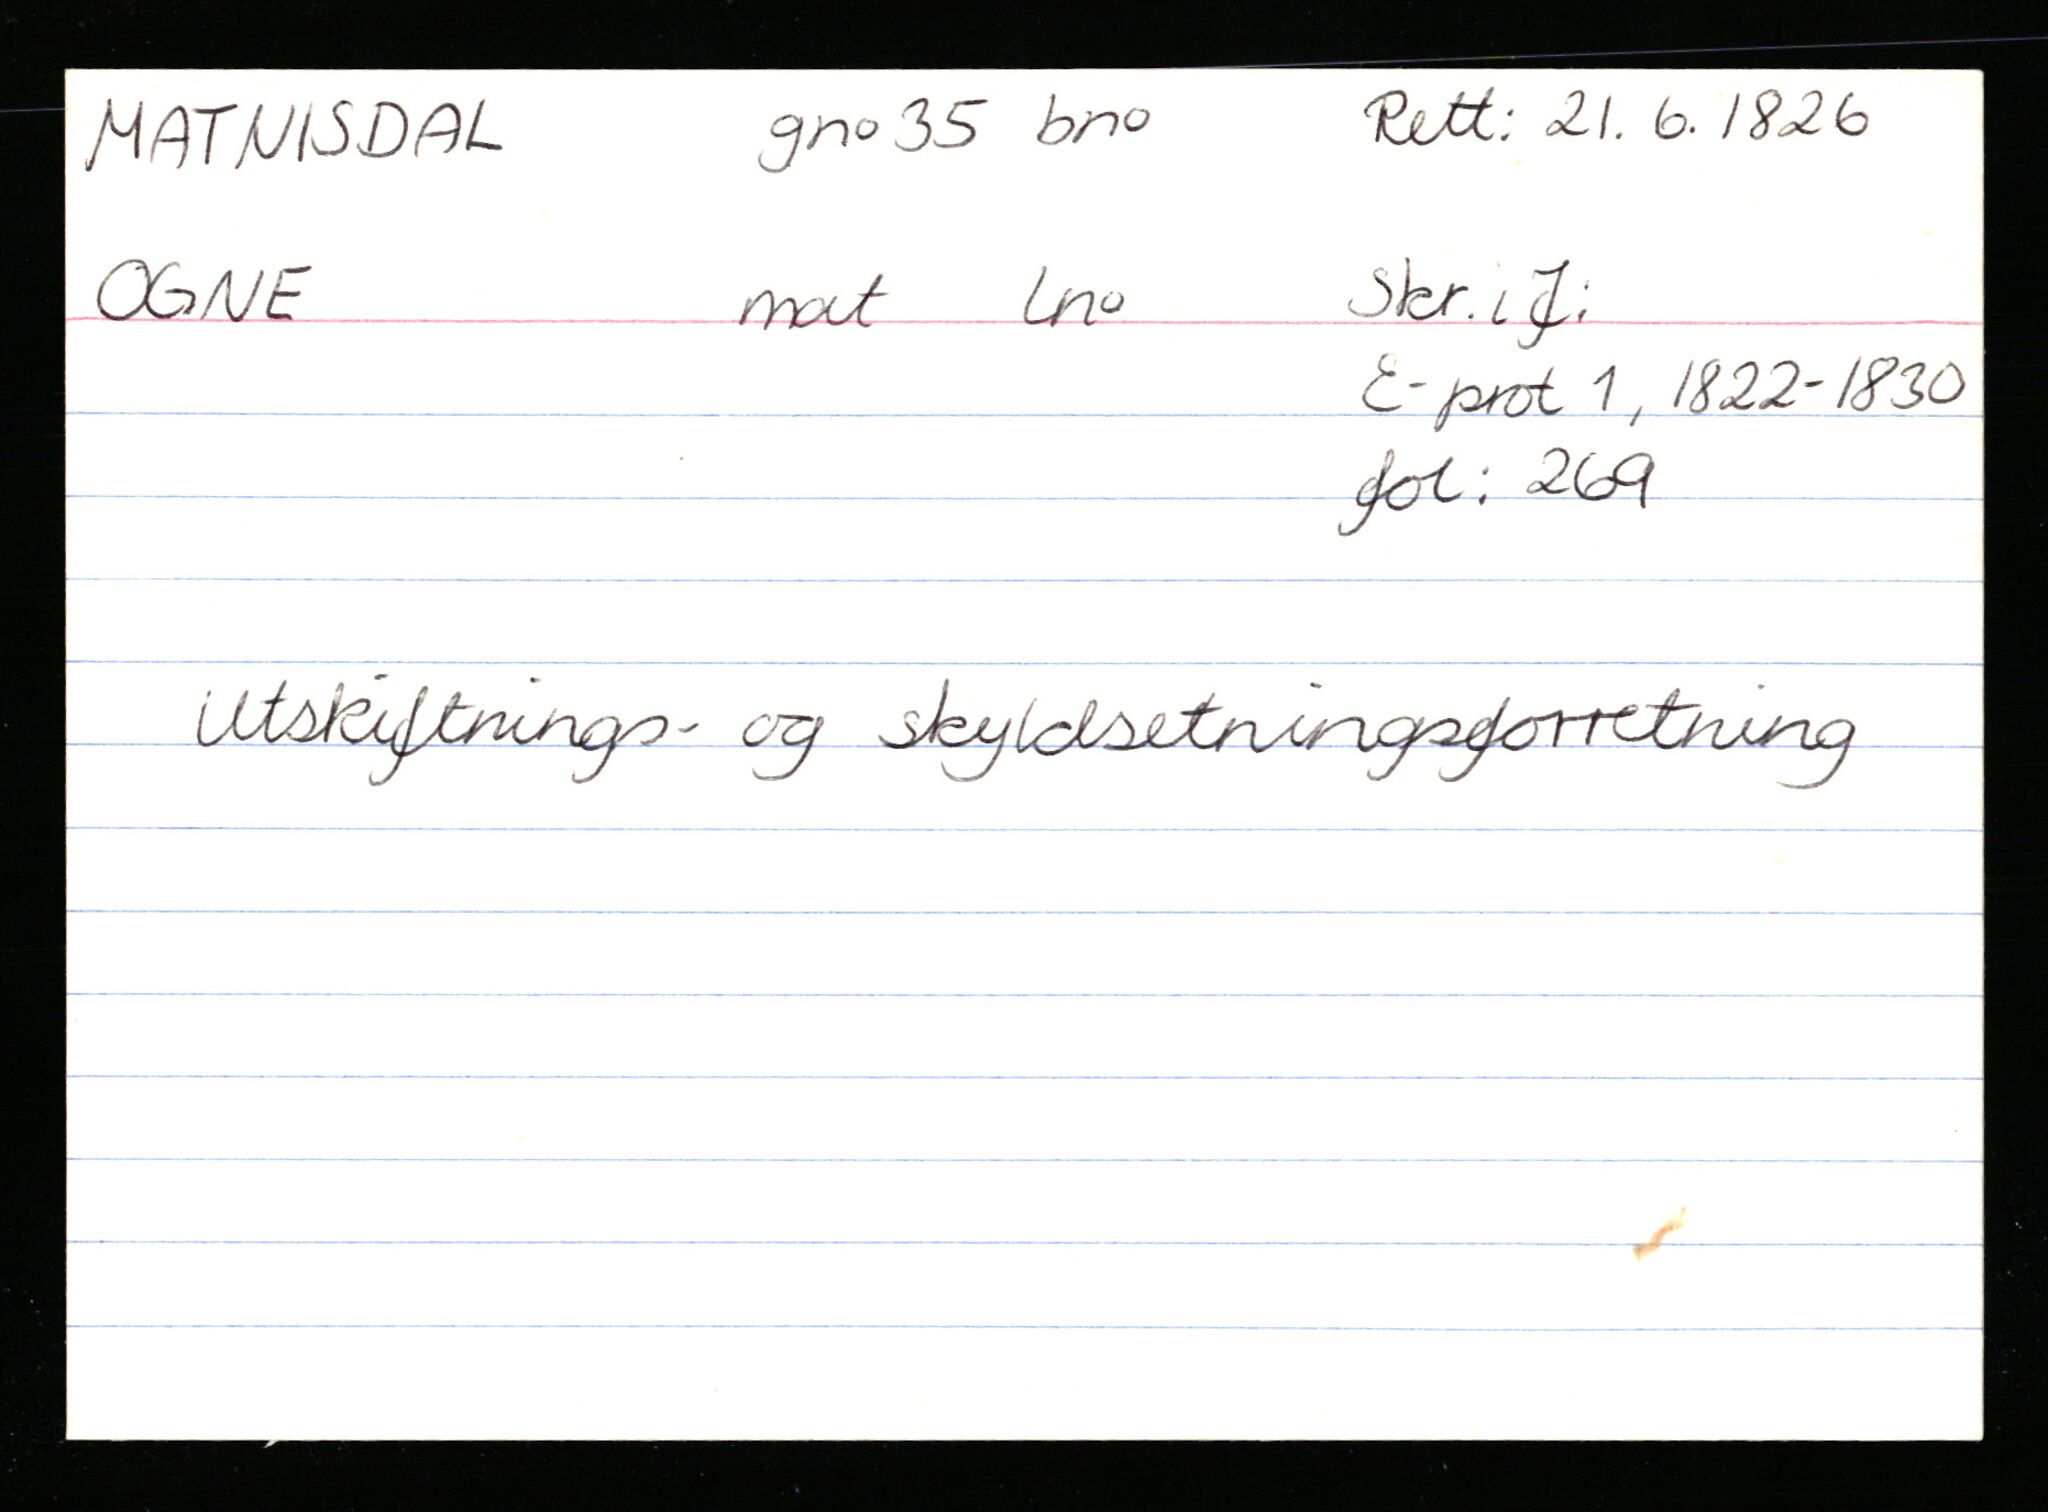 MATNISDAL gno 35 bno Rett: 21. 6. 1826
OGNE mat lno Skr. i J:
E-prot 1, 1822-1830
fol: 269
Utskiftnings- og skyldsetningsforretning